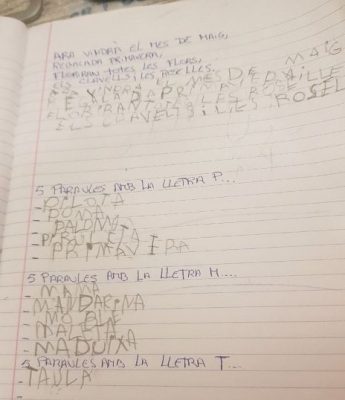 ARA VINDRÀ EL MES DE MAIG,
REGALADA PRIMAVERA,
FLORIRAN TOTES LES FLORS,
ELS CLAVELLS I LES ROSELLES.
MES DE MAIG
ELS CLAVELLS I LES ROSEL
5 PARAULES AMB LA LLETRA P...
- PILOTA
- POMA
- PALOMA
- PIRULETA
- PRIMAVERA
5 PARAULES AMB LA LLETRA M...
- MAMA
- MANDARINA
- MOBLE
- MALETA
- MADUIXA
5 PARAULES AMB LA LLETRA T...
- TAULA